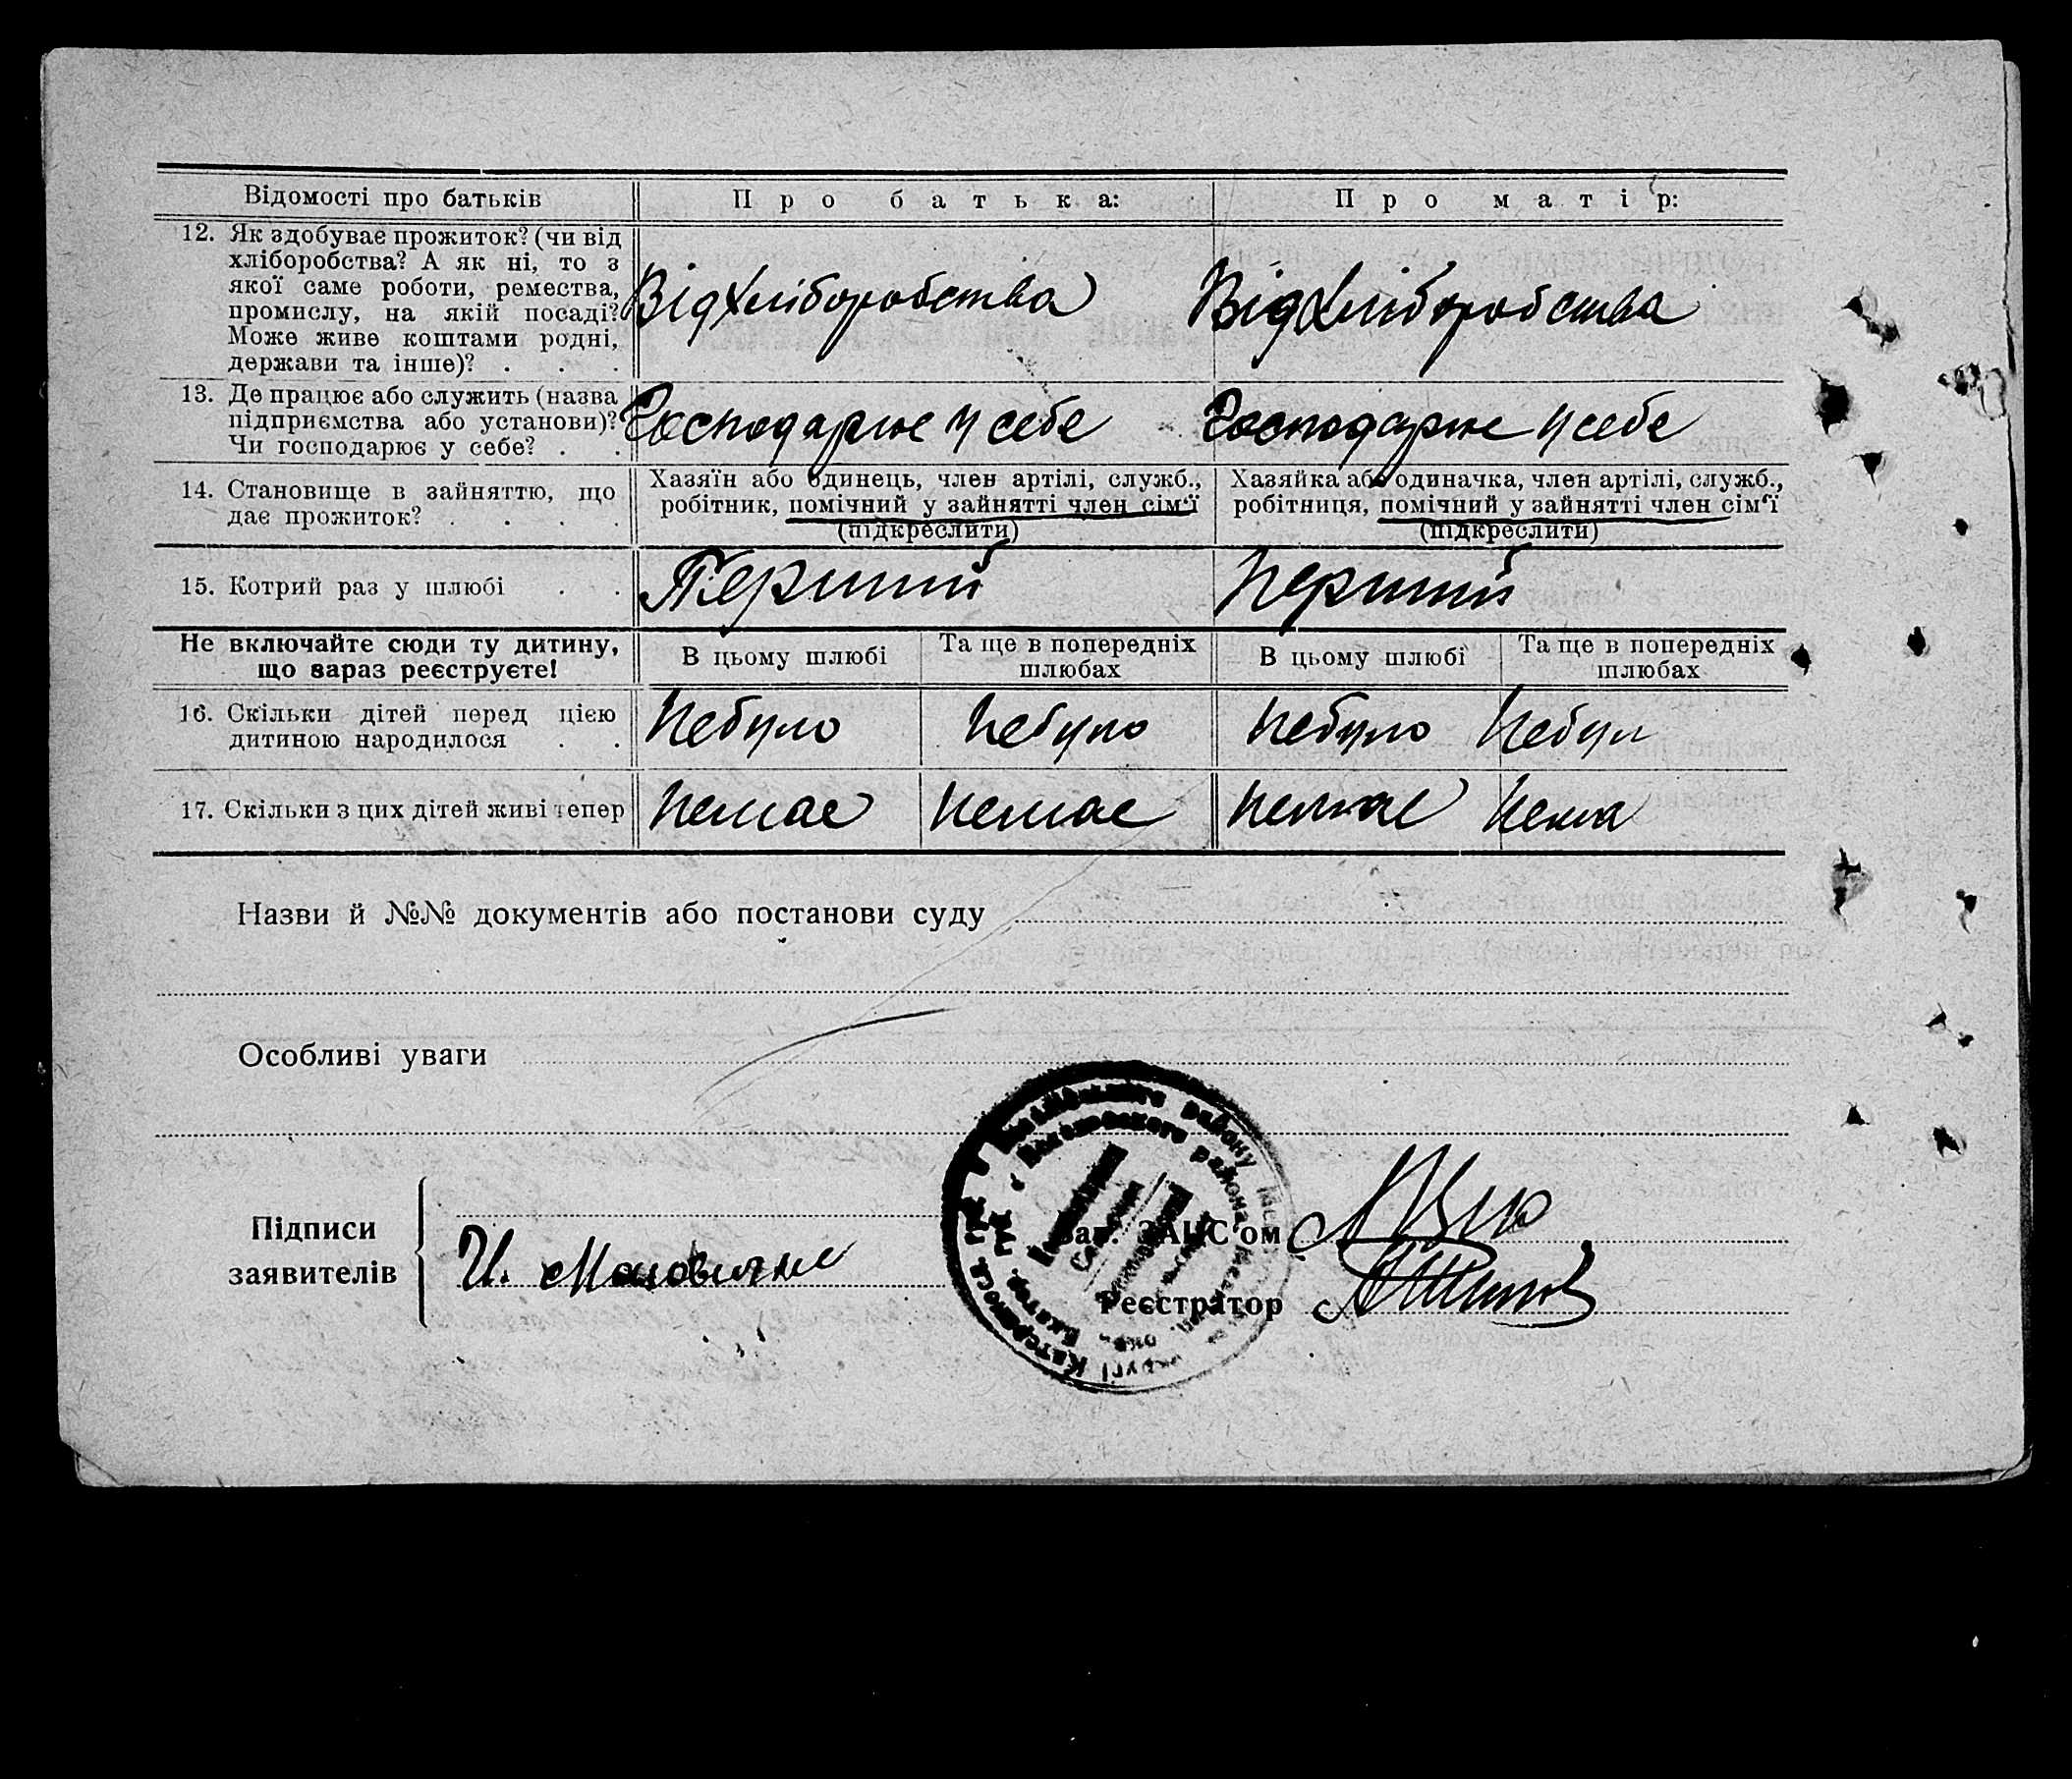 Відомості про батьків
Про батька:
Про матір:
12. Як здобуває прожиток? (чи від
хліборобства? А як ні, то з
якої саме роботи, ремества,
промислу, на якій посаді?
Може живе коштами родні,
держави та інше)? . . .
Від хліборобства
Від хліборобства
13. Де працює або служить (назва
підприємства або установи)?
Чи господарює у себе? . .
Господарює у себе
Господарює у себе
14. Становище в зайняттю, що
дає прожиток? . . . .
Хазяїн або одинець, член артілі, служб.,
робітник, помічний у зайнятті член сім'ї
(підкреслити)
Хазяйка або одиначка, член артілі, служб.,
робітниця, помічний у зайнятті член сім'ї
(підкреслити)
15. Котрий раз у шлюбі . .
Перший
Перший
Не включайте сюди ту дитину,
що зараз реєструєте!
В цьому шлюбі
Та ще в попередніх
шлюбах
В цьому шлюбі
Та ще в попередніх
шлюбах
16. Скільки дітей перед цією
дитиною народилося . .
Небуло
Небуло
Небуло
Небул
17. Скільки з цих дітей живі тепер
Немає
Немає
Немає
Нема
Назви й №№ документів або постанови суду
Особливі уваги
Підписи
заявителів
И.
Зав. ЗАНС'ом
Реєстратор
району
района